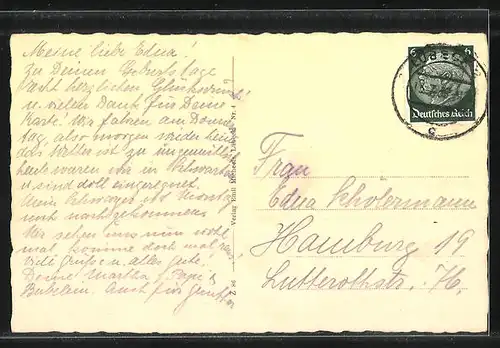 Meine liebe Edna!
Zu Deinem Geburtstage
recht herzlichen Glückwunsch!
u. vielen Dank für Deine
Karte! Wir fahren am Donners
tag, also morgen wieder heim
das Wetter ist zu ungemütlich
heute waren wir in
u. sind doll eingeregnet.
Mein Schwager ist Montag
mit nachgekommen.
Wir sehen uns nun wohl
mal, komme doch mal
Viele Grüße u. alles Gute!
Deine Martha, Papi u.
Bübelein. Auch für Günther
Verlag Emil Lübeck Nr. 4
L 86
6 6
Deutsches Reich
LÜBECK
c
Frau
Edna Scholermann
Hamburg 19
Lutterothstr. H.